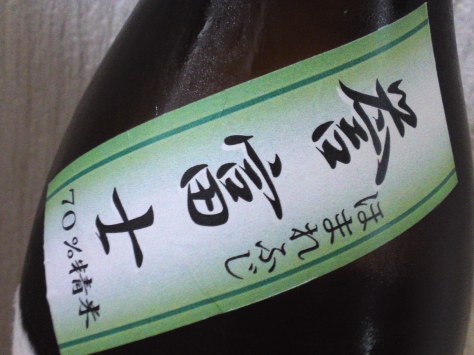 ほまれふじ
誉富士
70%精米